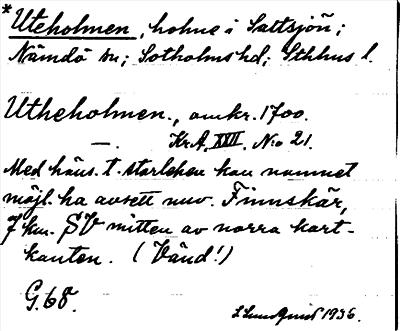 *Uteholmen, holme i Saltsjön;
Nämdö sn; Sotholms hd; Sthlms l.
Utheholmen., omkr. 1700.
—. Kr.A. XXII. No 21.
Med häns. t. storleken kan namnet
möjl. ha avsett nuv. Finnskär,
7 km. SV mitten av norra kart-
kanten. (Vänd!)
G. 68.
S Lundqvist 1936.